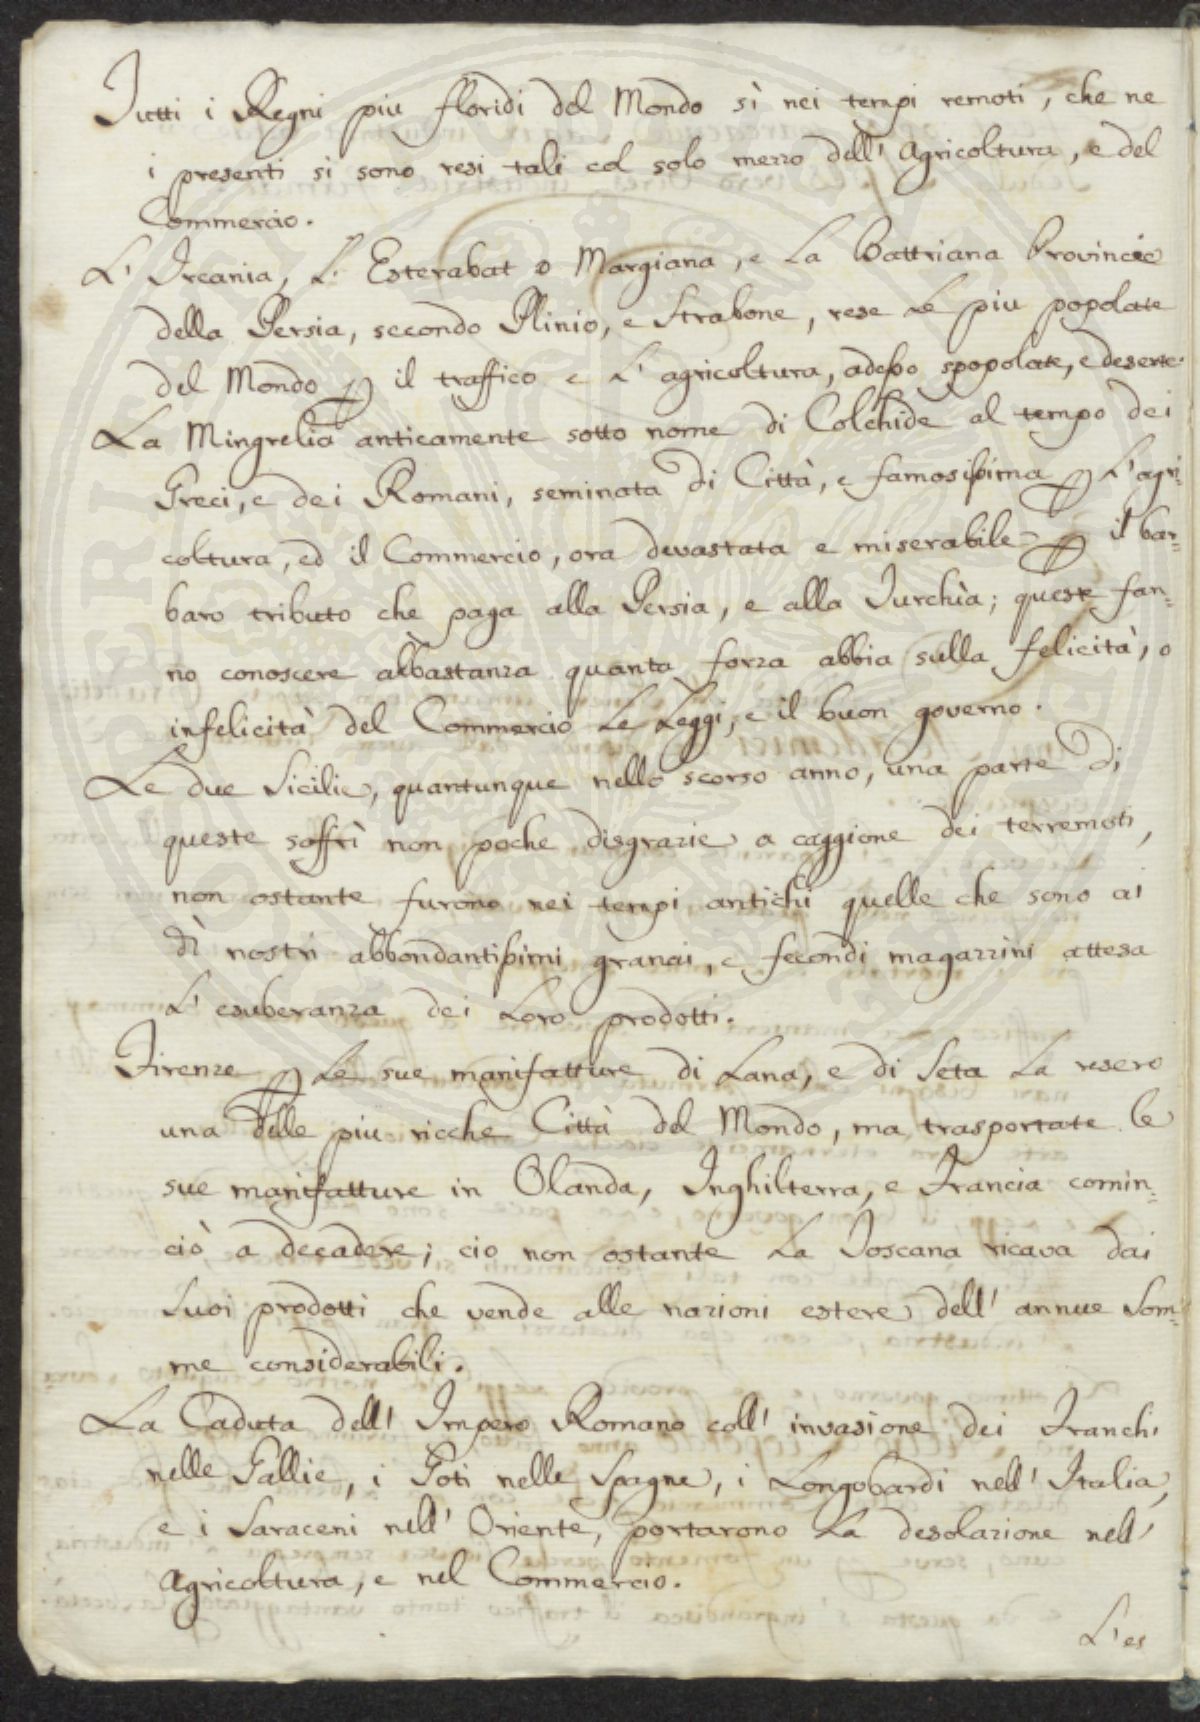 Tutti i Regni piu floridi del Mondo sì nei tempi remoti, che ne
i presenti si sono resi tali col solo mezzo dell' Agricoltura, e del
Commercio.
L' Ircania, L' Esterabat o Margiana, e La Battriana Provincie
della Persia, secondo Plinio, e Strabone, rese Le piu popolate
del Mondo p il traffico e L' agricoltura, adesso spopolate, e deserte.
La Mingrelia anticamente sotto nome di Colchide al tempo dei
Greci, e dei Romani, seminata di Città, e famosissima p L' agri=
coltura, ed il Commercio, ora devastata e miserabile p il bar=
baro tributo che paga alla Persia, e alla Turchìa; queste fan=
no conoscere abbastanza quanta forza abbia sulla felicità, o
infelicità del Commercio Le Leggi, e il buon governo.
Le due Sicilie, quantunque nello scorso anno, una parte di
queste soffrì non poche disgrazie a caggione dei terremoti,
non ostante furono nei tempi antichi quelle che sono ai
dì nostri abbondantissimi granai, e fecondi magazzini attesa
L' esuberanza dei Loro prodotti.
Firenze p Le sue manifatture di Lana, e di Seta La resero
una delle piu ricche Città del Mondo, ma trasportate le
sue manifatture in Olanda, Inghilterra, e Francia comin=
ciò a decadere; cio non ostante La Toscana ricava dai
Suoi prodotti che vende alle nazioni estere dell' annue Som=
me considerabili.
La Caduta dell' Impero Romano coll' invasione dei Franchi
nelle Gallie, i Goti nelle Spagne, i Longobardi nell' Italia,
e i Saraceni nell' Oriente, portarono La desolazione nell'
Agricoltura, e nel Commercio.
L' es